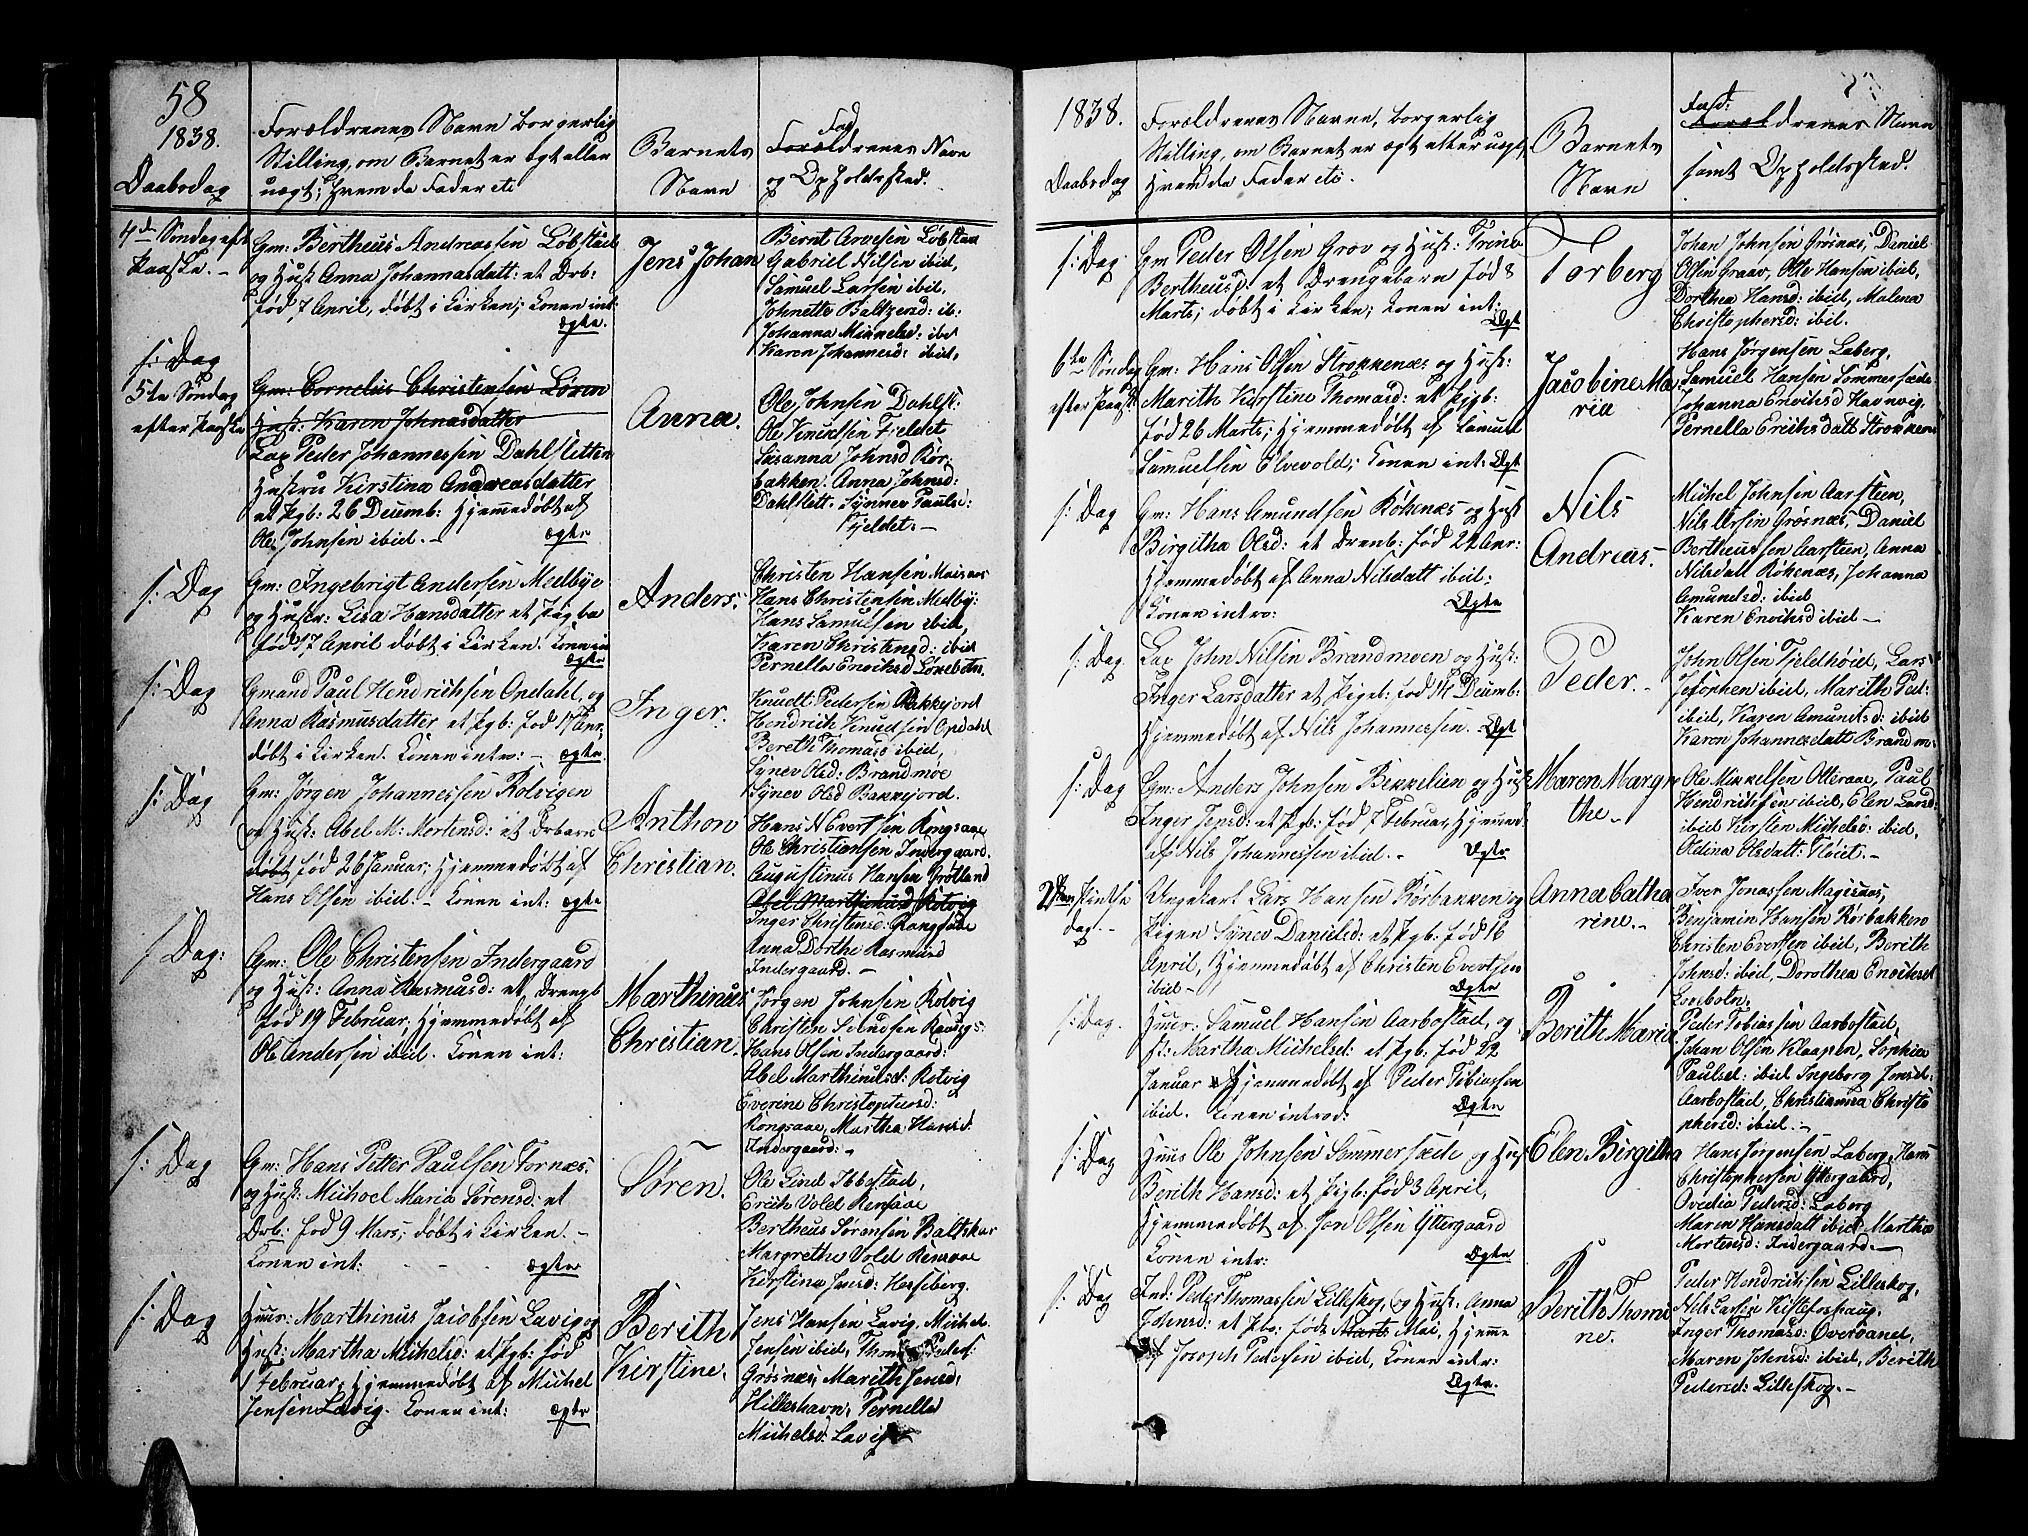 58
1838.
Daabsdag
Forældrenes Navn borgerlig
Stilling, om Barnet er ægt eller
uægt; hvem da Fader etc
Barnets
Navn
Fad
Forældrenes Navn
og Opholdssted.
4de Søndag eft
Paaske. –
Gm: Bertheus Andreassen Løbstad
og Hust Anna Johannasdatt: et Drb-
fød 7 April, døbt i Kirken; Konen int:
ægte.
Jens Johan
Bernt Arvesen Løbstad
Gabriel Nilsen ibid,
Samuel Larsen ibid,
Johnette Baltzersd: ib:
Johanna Minnelsd: ibd
Karen Johannesd: ibid,
s: Dag
5te Søndag
efter Paaske
Gm: Cornelius Christensen
Hust: Karen Johnasdatter
Lap Peder Johannessen Dahlsletten
Hustru Kirstina Andreasdatter
et Pgb: 26 Decemb: Hjemmedøbt af
Ole Johnsen ibid. –
ægte
Anna.
Ole Johnsen Dahlsl:
Ole Knudsen Fjeldet
Susanna Johnsd Rør-
bakken. Anna Johnsd:
Dahlslett. Synnev Paulsd:
Fjeldet: –
s: Dag
Gm: Ingebrigt Andersen Medbye
og Hustr: Lisa Hansdatter et Pigba
fød 17 April døbt i Kirken. Konen in
ægte
Anders.
Christen Hansen
Hans Christensen Medby:
Hans Samuelsen ibid,
Karen Christensd: ibid
Pernella Enoksd
s: Dag
Gmand Paul Hendrichsen Opdahl, og
Anna Rasmusdatter et Pgb: fød 17 Apr.
døbt i Kirken. Konen intro: – ægte.
Inger.
Knudt Pedersen Bakkejord
Hendrich Knudsen Opdahl
Bereth Thomasd ibid,
Synev Olsd: Brandmoe
Synev Olsd Bakkejord.
s: Dag
Gm: Jørgen Johannessen Rolvigen
og Hust: Abel M: Mortensd: et Drbarn
døbt fød 26 Januar; Hjemmedøbt af
Hans Olsen ibid. – Konen int: ægte
Anthon
Christian.
Hans N Evertsen Rongsaae
Ole Christiansen Indergaard.
Augustinus Hansen Grøtland
Abel Marthinusd Rotvig
Inger Christense: Rongsaae
Anna Dorthe Rasmusd
Indergaard. –
s Dag:
Gm: Ole Christensen Indergaard
og Hust: Anna Rasmusd: et Drengb
fød 19 Februar; Hjemmedøbt af
Ole Andersen ibid. Konen int:
Marthinus
Christian.
Jørgen Johnsen Rolvig
Christen
Hans Olsen Indergaard:
Abel Marthinusd: Rotvig
Everine Christophersd:
Rongsaae, Martha Hansd:
Indergaard: –
s: Dag
Gm: Hans Petter Paulsen Fornæs:
og Hust: Michoel Maria Sørensd: et
Drb: fød 9 Mars; døbt i Kirken. –
Konen int: - - - ægte
Søren.
Ole Lind Ibbestad,
Erich Vold Rensaae
Bertheus Sørensen Baltskar
Margrethe Vold Rensaae
Kirstina Jensd: Hesseberg.
s: Dag
Huur: Marthinus Jacobsen Lavig og
Hust: Martha Michelsd: et Pgb: fød
1 Februar; Hjemmedøbt af Michel
Jensen Lavig. Konen int: ægte
Berith
Kirstine.
Jens Hansen Lavig. Michel
Jensen ibid, Thom Peders:
Grøsnæs Marith Jensd:
Hilleshavn, Pernella
Michelsd: Lavig
1838.
Daabsdag
Forældrenes Navne, borgerlig
Stilling, om Barnet er ægt etter uægt,
Hvem da Fader etc.
Barnets
Navn
Fad:
Forældrenes Navn
samt Opholdssted.
s: Dag
Gm Peder Olsen Grov og Hust: Trine
Bertheusd: et Drengebarn fød 8
Marts; døbt i Kirken; Konen int:
Ægte
Torberg
Johan Johnsen Grøsnæs, Daniel
Olsen Graav, Otte Hansen ibid,
Dorthea Hansd: ibid, Malena
Christophersd: ibid.
6te Søndag
efter Paaske
Gm: Hans Olsen Strokkenæs og Hust:
Marith Kirstine Thomasd: et Pgb:
fød 26 Marts; Hjemmedøbt af Samuel
Samuelsen Elvevold; Konen int: Ægte
Jacobine Ma
ria
Hans Jørgensen Laberg,
Samuel Hansen Sommersæde
Johanna Enoksd Havnvig,
Pernella Erichsdatt Strokken
s: Dag
Gm: Hans Amundsen Røkenæs og Hust
Birgitha Olsd: et Drenb: fød 22 Apr:
Hjemmedøbt af Anna Nilsdatt ibid:
Konen intro: Ægte
Nils
Andreas.
Michel Johnsen Aarsteen,
Nils Arsen Grøsnæs, Daniel
Bertheussen Aarsteen, Anna
Nilsdatt Røkenæs, Johanna
Amundsd: ibid
Karen Enoksd ibid –
s: Dag.
Lap John Nilsen Brandmoen og Hust:
Inger Larsdatter et Pigeb: fød 14 Decemb:
Hjemmedøbt af Nils Johannessen. Ægt
Peder.
John Olsen Fjeldhøid, Lars
Josephsen ibid, Marith Ped:
ibid, Karen Amundsd: ibid
Karen Johannesdatt Brandm:
s: Dag
Gm: Anders Johnsen Bekkelien og Hust
Inger Jensd: et Pgb: fød 7 Februar, Hjemmed.
af Nils Johannessen ibid. – Ægte
Maren Margre
the –
Ole Mikkelsen Otteraae, Paul
Hendrichsen ibid, Elen Larsd:
ibid Kirsten Michelsd: ibid,
Oldina Olsdatt: Fløiet. –
2den Pintse
dag. –
Ungekarl Lars Hansen Rørbakken og
Pigen Synev Danielsd: et Pgb: fød 16
April, Hjemmedøbt af Christen Evertsen
ibid – Ægte
Anna Catha
rine. –
Iver Jonassen Magisnæs,
Binjamin Hansen Rørbakken
Christen Evertsen ibid, Berith
Johnsd: ibid, Dorothea Enoksd
s: Dag.
Huur: Samuel Hansen Aarbostad, og
H: Martha Michelsd: et Pgb: fød 22
Januar Hjemmedøbt af Peder Tobiassen
ibid. Konen introd: Ægte
Berith Maria
Peder Tobiassen Aarbostad,
Johan Olsen Klaapen, Sophia
Paulsd: ibid Ingeborg Jensd:
Aarbostad, Christianna Christo
phersd: ibid. –
s: Dag
Huus Ole Johnsen Sommersæde og Hust
Berith Hansd: et Pigb: fød 3 April,
Hjemmedøbt af Jon Olsen Yttergaard
Konen intr: Ægte
Elen Birgitha
Hans Jørgensen Laberg, Hans
Christophersen Yttergaard,
Ovedia Pedersd: Laberg
Maren Hansdatt ibid Martha
Mortensd: Indergaard. –
s: Dag
Ind: Peder Thomassen Lilleskog, og Hust: Anna
Johnsd: et Pb: født Marts Mai, Hjemme
af Joseph Pedersen ibid, Konen intr:
Ægte.
Berith Thomi
ne.
Peder Hendrichsen Lilleskog,
Nils Larsen Kistefoshaug,
Inger Thomasd: Overvand,
Maren Johnsd: ibid, Berith
Pedersd: Lilleskog. –